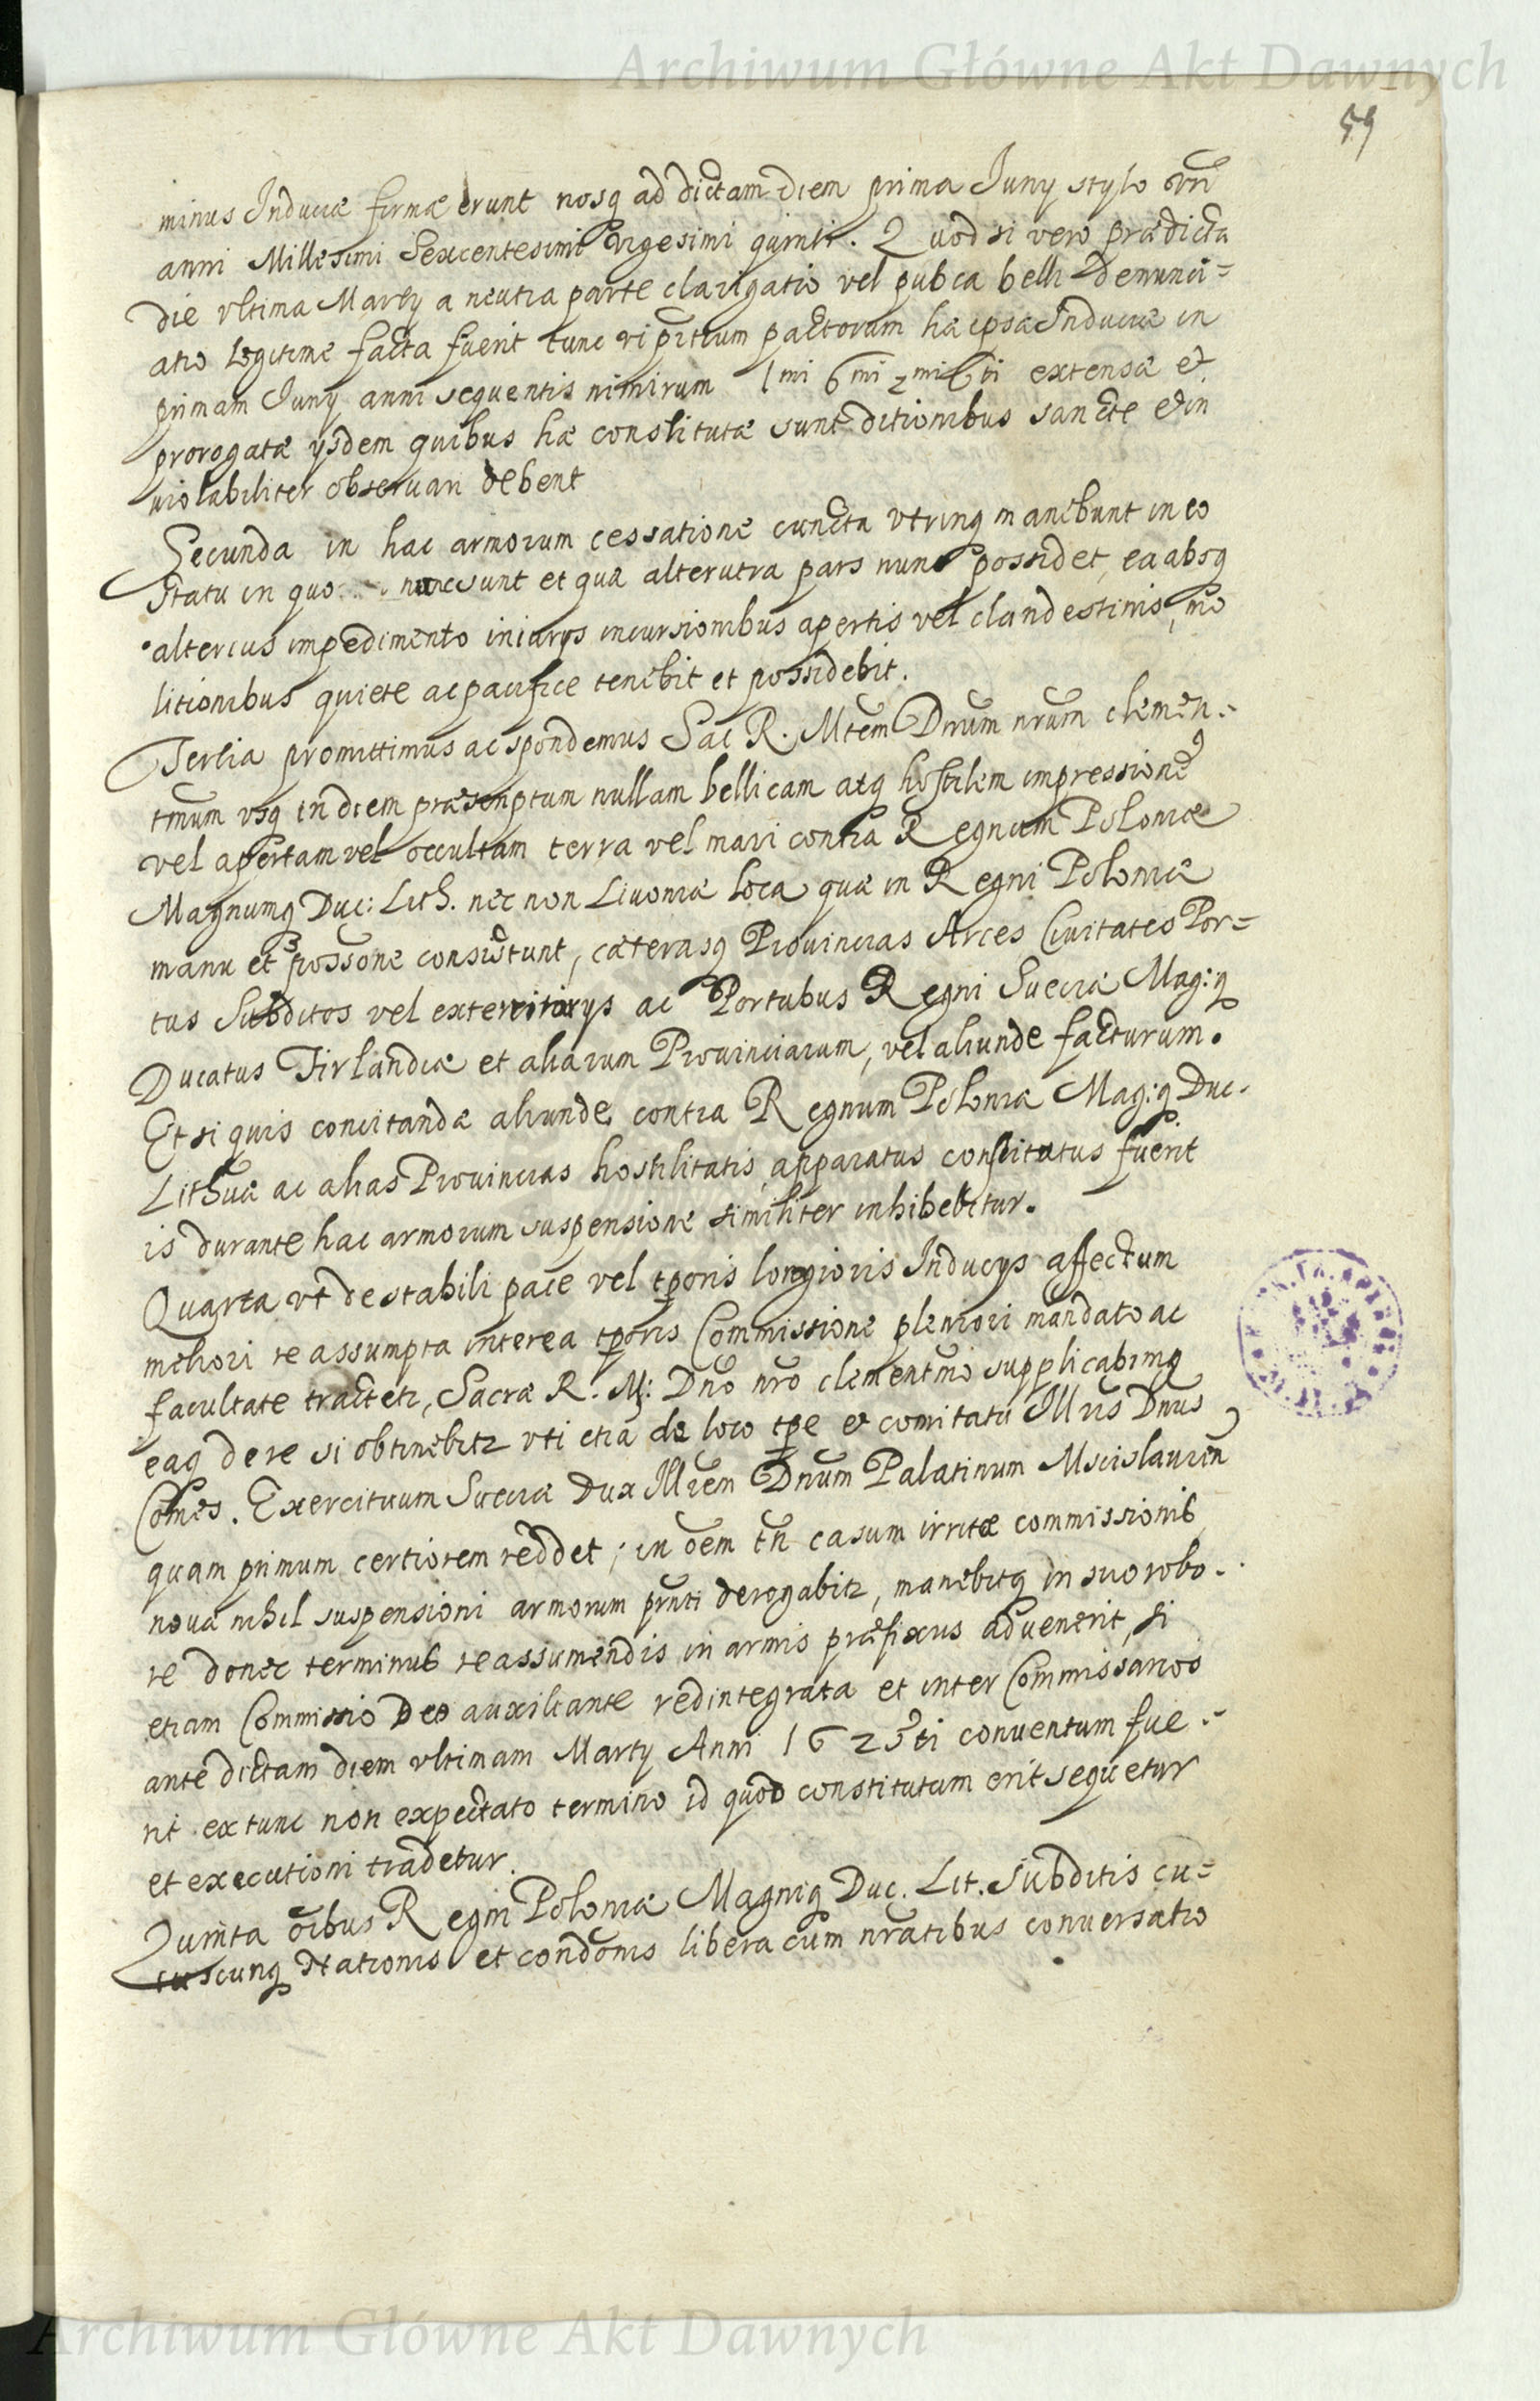 Archiwum Główne Akt Dawnych
59
minus Induciæ firmæ erunt nosq ad dictam diem prima Iuny stylo
anni Millesimi Sexcentesimi vigesimi quinti. Quod si vero prædicta
die vltima Marty a neutra parte clarigatio vel pubca belli denunci=
atio legitime facta fuerit tunc vi pñtium pactorum hæ ipsæ Induciæ in
primam Iuny anni sequentis nimirum 1mi 6mi 2mi 6ti extensæ et
prorogatæ ysdem quibus hæ constitutæ sunt ditionibus sancte et in
uiolabiliter obseruari debent
Secunda in hac armorum cessatione cuncta vtrinq manebunt in eo
statu in quo nunc sunt et quæ alterutra pars nunc possidet, ea absq
alterius impedimento iniurys incursionibus apertis vel clandestinis, mo
litionibus quiete ac pacifice tenebit et possidebit.
Tertia promittimus ac spondemus Sac R. Mtem Dnum nrum clemen.-
tmum vsq in diem præscriptum nullam bellicam atq hostilem impressione
vel apertam vel occultam terra vel mari contra Regnum Poloniæ
Magnumq Duc: Lith. nec non Liuoniæ loca quæ in Regni Poloniæ
manu et possone consistunt, cæterasq Prouincias Arces Ciuitates Por=
tus Subditos vel ac Portubus Regni Sueciæ Mag:q
Ducatus Finlandiæ et aliarum Prouinciarum, vel aliunde facturum.
Et si quis concitandæ aliunde contra Regnum Poloniæ Mag:q Duc.
Lithuæ ac alias Prouincias hostilitatis apparatus constitutus fuerit
is durante hac armorum suspensione similiter inhibebitur.
Quarta vt de stabili pace vel tporis longioris Inducys affectum
meliori reassumpta interea tporis Commissione pleniori mandato ac
facultate tractetr, Sacræ R. M: Dno nro clementmo supplicabimq
eaq de re si obtinebitr vti etiã de loco tpe et comitatu Illris Dnus
Comes. Exercituum Sueciæ Dux Illrem Dnum Palatinum Mscislauien
quam primum certiorem reddet; in oẽm tñ casum irritæ commissionis
noua nihil suspensioni armorum prñti derogabitr, manebitq in suo robo.-
re donec terminus reassumendis in armis præfixus aduenerit, si
etiam Commissio Deo auxiliante redintegrata et inter Commissarios
ante dictam diem vltimam Marty Anni 1625ti conuentum fue.-
rit extunc non expectato termino id quod constitutum erit sequetur
et executioni tradetur.
Quinta oibus Regni Poloniæ Magniq Duc. Lit. Subditis cu=
iuscunq Nationis et condonis libera cum nratibus conuersatio
Archiwum Główne Akt Dawnych